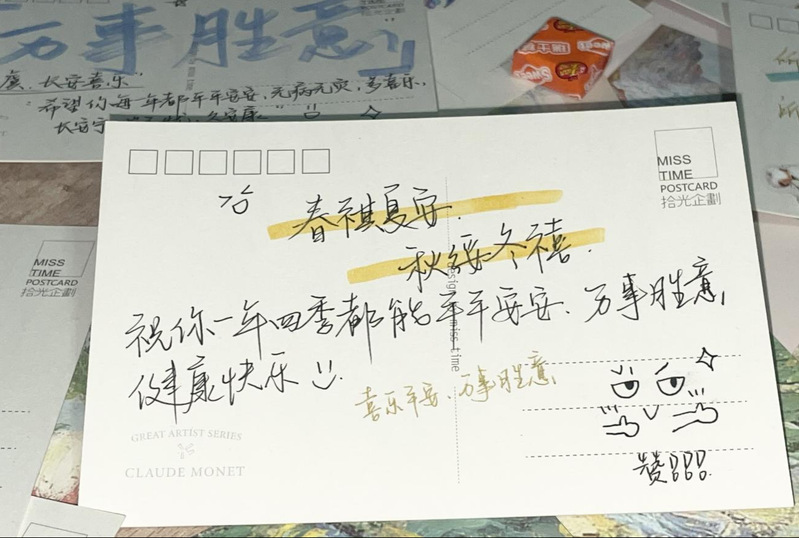 万事胜意
长安喜乐
希望你每一年都平平安安,无病无灾,多喜乐,
长安宁
MISS
TIME
POSTCARD
拾光企劃
春祺夏安.
秋绥冬禧.
祝你一年四季都能平平安安.万事胜意,
健康快乐
喜乐平安,万事胜意
design miss·time
赞!!!
GREAT ARTIST SERIES
CLAUDE MONET
MISS
TIME
POSTCARD
拾光企劃